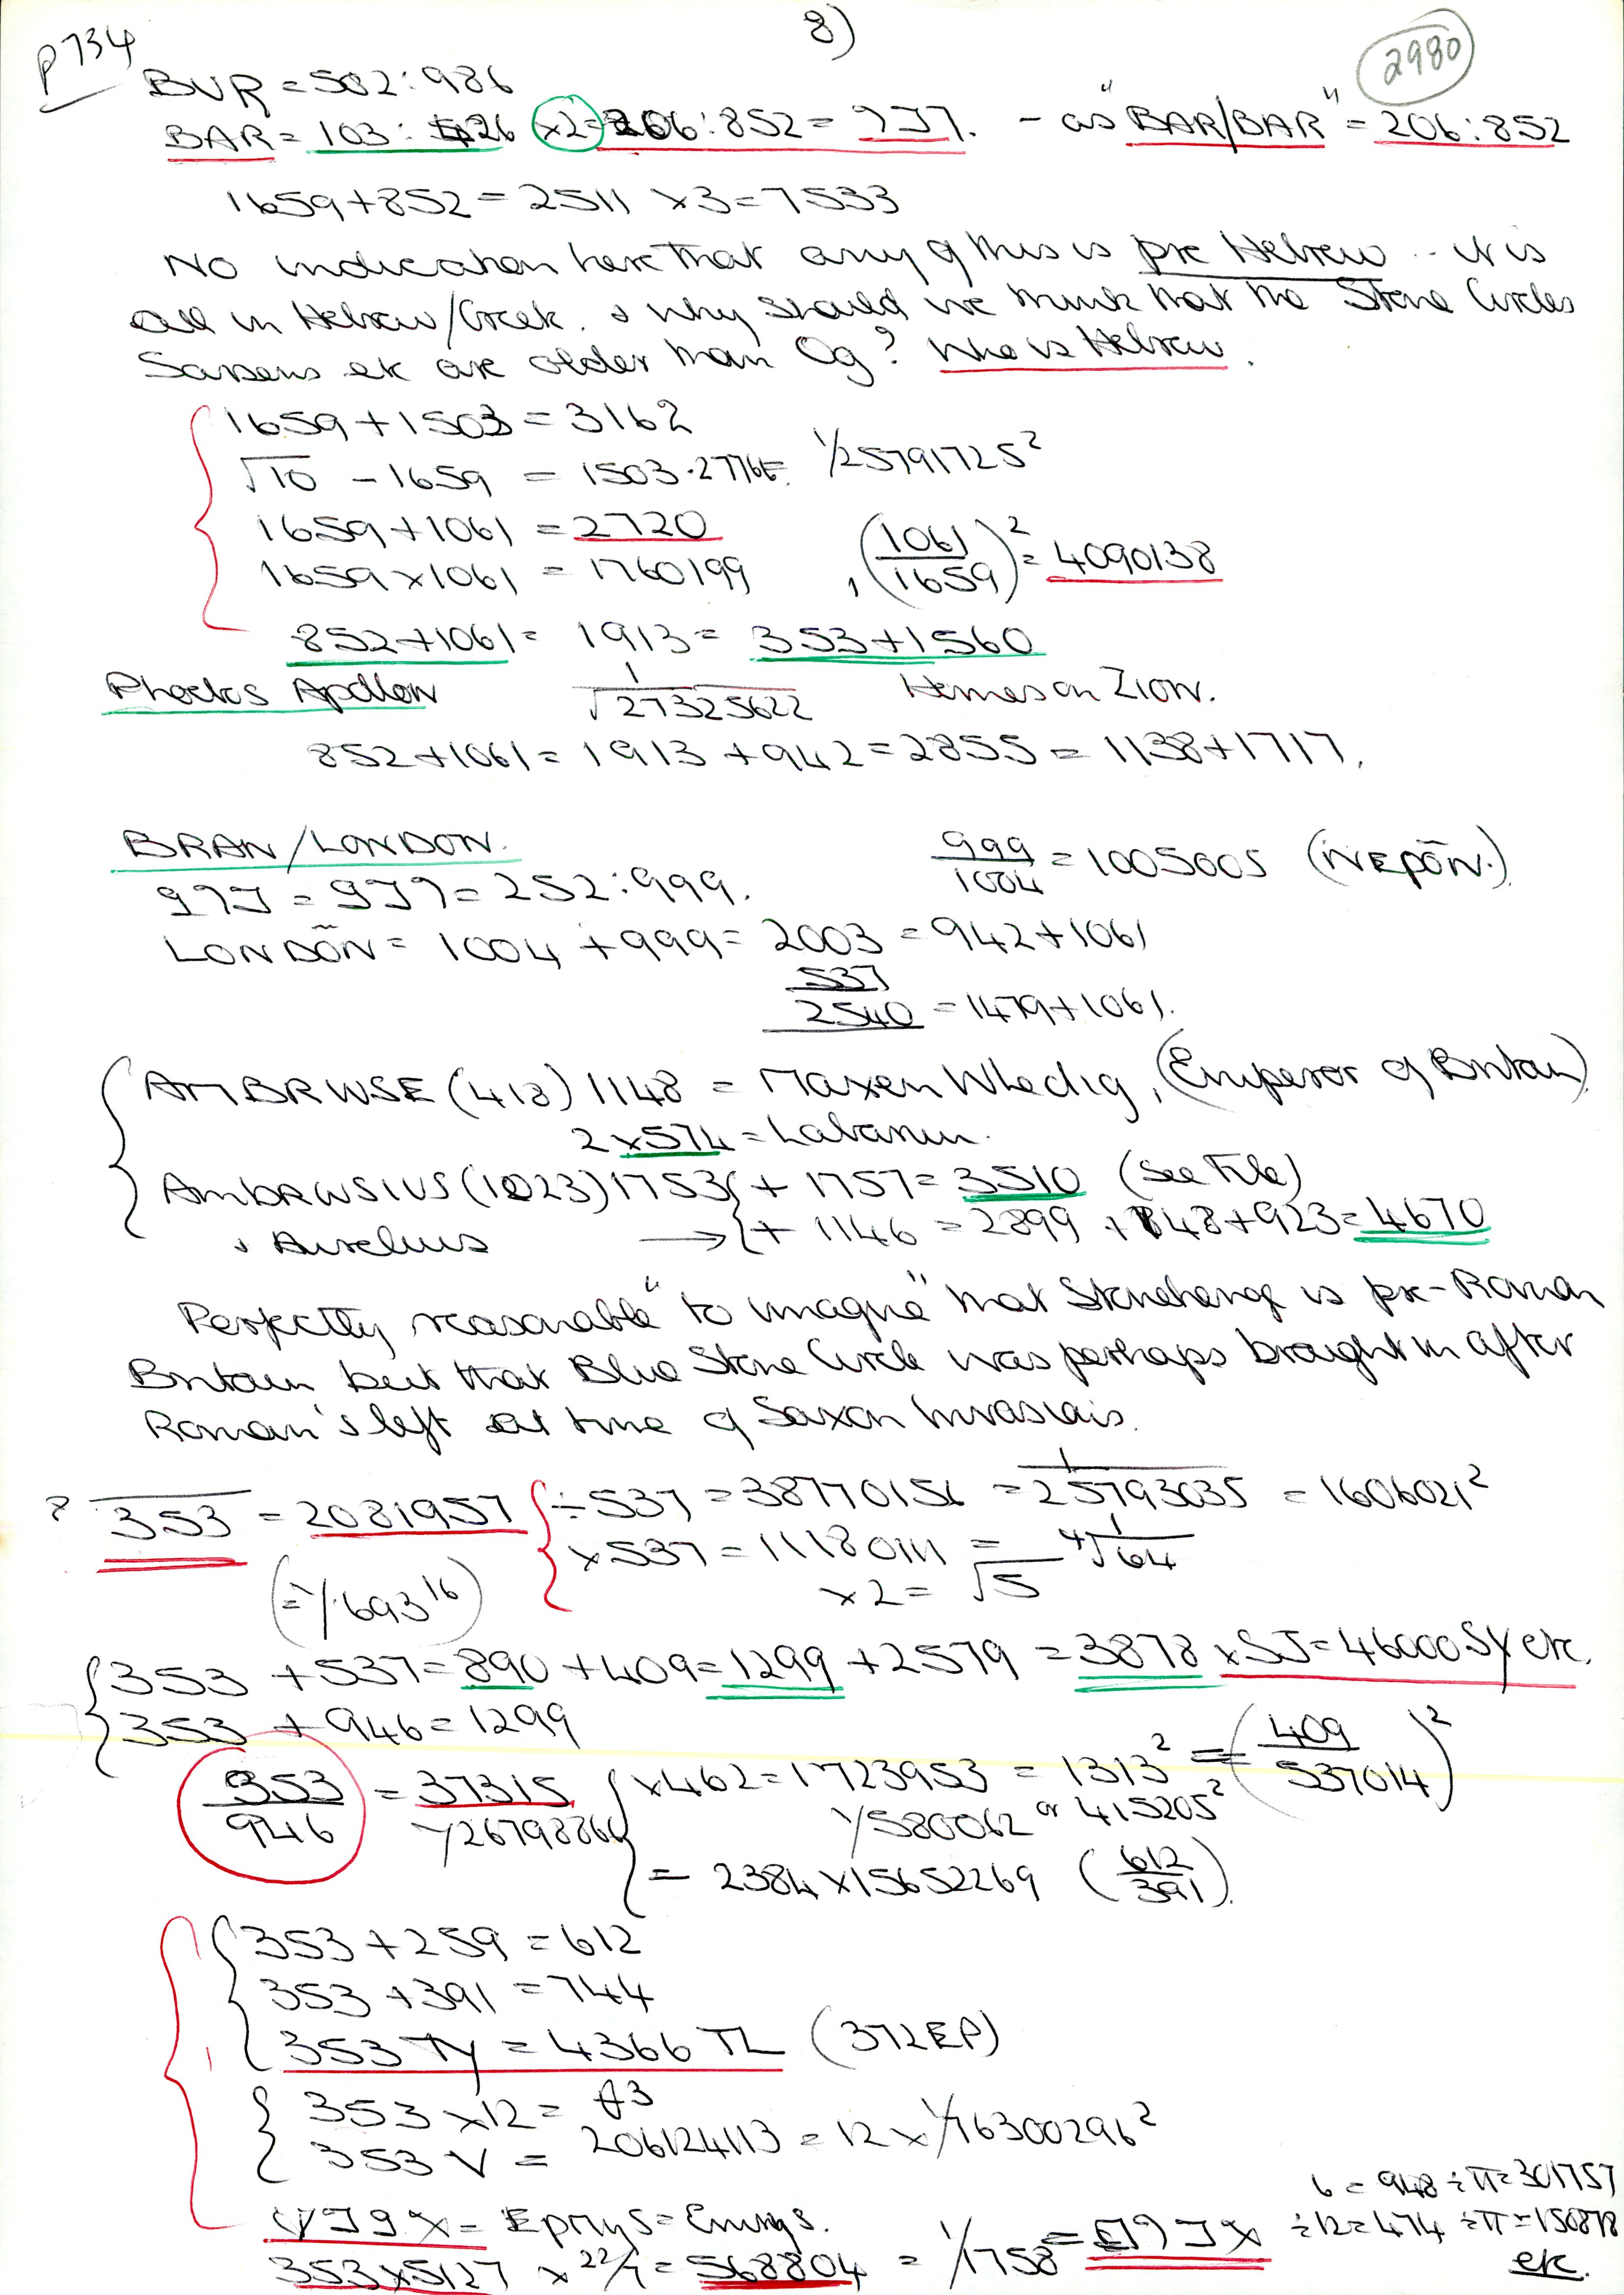 8)
P734
2980
BVR = 502:986
BAR = 103:426 (×2) = 206:852 = - as "BAR/BAR" = 206:852
1659+852 = 2511 ×3 = 7533
No indication here that any of this is pre Hebrew .. it is
all in Hebrew/Greek. & why should we think that the Stone Circles
Sarsens etc are older than Og? Who is Hebrew.
1659+1503 = 3162
√10 - 1659 = 1503.2776 = 1/25791725²
1659+1061 = 2720
1659×1061 = 1760199 , (1061/1659)² = 4090138
852+1061 = 1913 = 353+1560
Phoebos Apollon 1/√27325622 Hermes on Zion.
852+1061 = 1913+942 = 2855 = 1138+1717.
BRAN/LONDON.
999/1004 = 1005005 (NEPŌN.)
= 252:999.
LONDŌN = 1004+999 = 2003 = 942+1061
537
2540 = 1479+1061.
AMBRWSE (418) 1148 = Maxen Wledig, (Emperor of Britain)
2×574 = Labarum.
AMBRWSIUS (1023) 1753 + 1757 = 3510 (see File)
& Aurelius → + 1146 = 2899 + 848+923 = 4670
Perfectly reasonable "to imagine" that Stonehenge is pre-Roman
Britain but that Blue Stone Circle was perhaps brought in after
Roman's left at time of Saxon Invasions.
353 = 2081957 ÷537 = 38770156 = 1/25793035 = 1606021²
×537 = 11180111 = 4√1/64
(=1/.693¹⁶) ×2 = √5
353 + 537 = 890 + 409 = 1299 + 2579 = 3878 × SJ = 46000 SY etc.
353 + 946 = 1299
353/946 = 37315 ×462 = 1723953 = 1313² = (409/537014)²
1/26798866 1/580062 or 415205²
= 2384×15652269 (612/391).
353+259 = 612
353+391 = 744
353 TY = 4366 TL (372EP)
353×12 = A3
353 V = 206124113 = 12×1/76300296²
6 = 948 ÷π = 301757
÷12 = 474 ÷π = 150878
etc.
353×5127 × 22/7 = 568804 = 1/1758 =